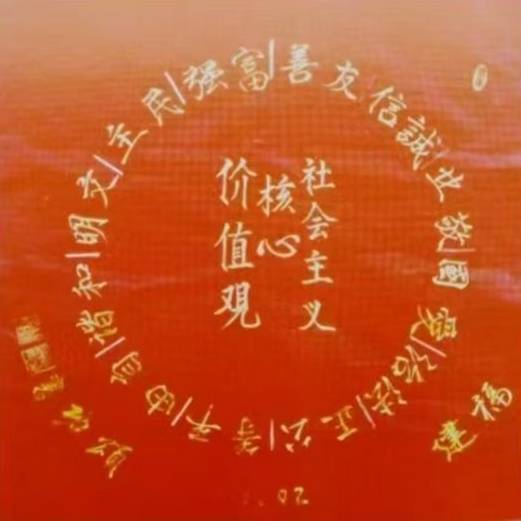 社会主义
核心
价值观
富强|民主|文明|和谐|自由|平等|公正|法治|愛國|敬业|誠信|友善
福建
02